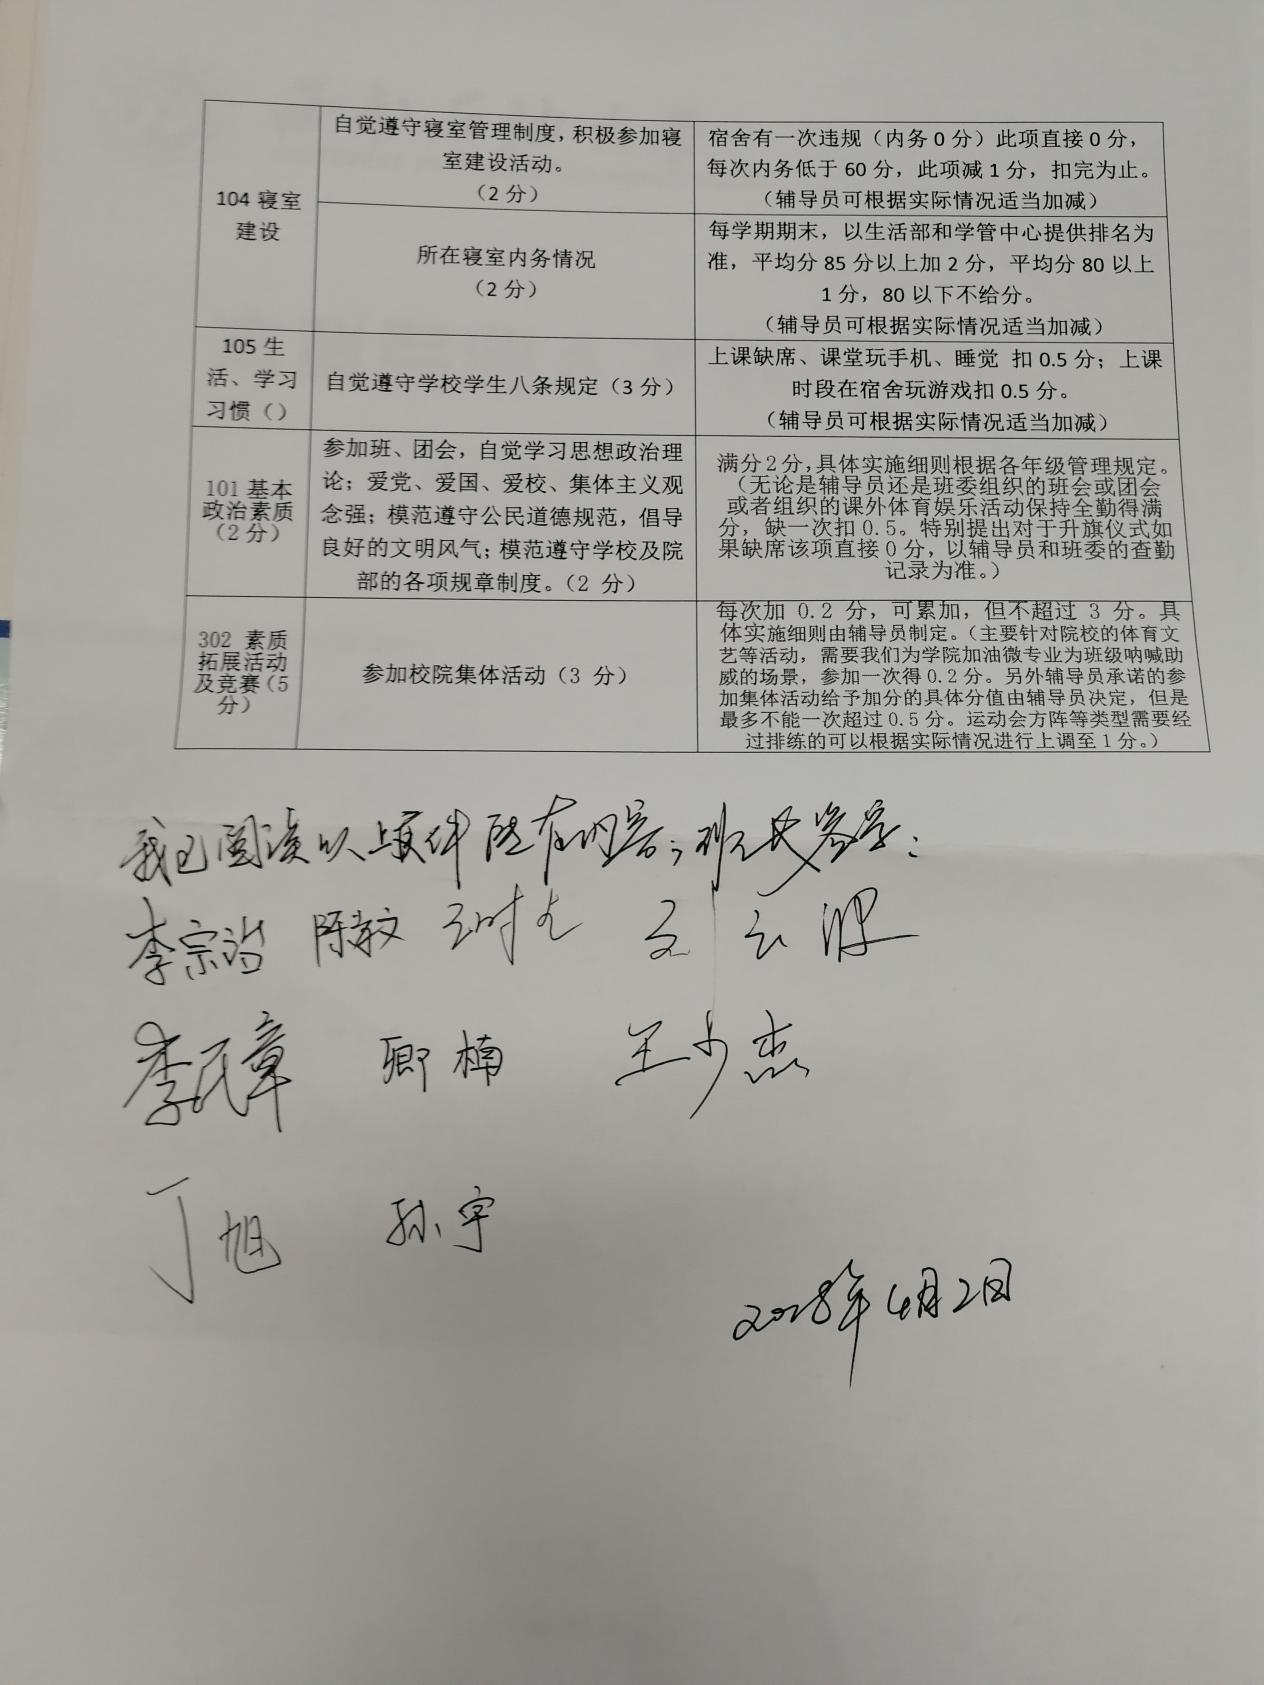 104 寝室
建设
自觉遵守寝室管理制度，积极参加寝
室建设活动。
（2 分）
宿舍有一次违规（内务 0 分）此项直接 0 分，
每次内务低于 60 分，此项减 1 分，扣完为止。
（辅导员可根据实际情况适当加减）
所在寝室内务情况
（2 分）
每学期期末，以生活部和学管中心提供排名为
准，平均分 85 分以上加 2 分，平均分 80 以上
1 分，80 以下不给分。
（辅导员可根据实际情况适当加减）
105 生
活、学习
习惯（）
自觉遵守学校学生八条规定（3 分）
上课缺席、课堂玩手机、睡觉 扣 0.5 分；上课
时段在宿舍玩游戏扣 0.5 分。
（辅导员可根据实际情况适当加减）
101 基本
政治素质
（2 分）
参加班、团会，自觉学习思想政治理
论；爱党、爱国、爱校、集体主义观
念强；模范遵守公民道德规范，倡导
良好的文明风气；模范遵守学校及院
部的各项规章制度。（2 分）
满分 2 分，具体实施细则根据各年级管理规定。
（无论是辅导员还是班委组织的班会或团会
或者组织的课外体育娱乐活动保持全勤得满
分，缺一次扣 0.5。特别提出对于升旗仪式如
果缺席该项直接 0 分，以辅导员和班委的查勤
记录为准。）
302 素质
拓展活动
及竞赛（5
分）
参加校院集体活动（3 分）
每次加 0.2 分，可累加，但不超过 3 分。具
体实施细则由辅导员制定。（主要针对院校的体育文
艺等活动，需要我们为学院加油微专业为班级呐喊助
威的场景，参加一次得 0.2 分。另外辅导员承诺的参
加集体活动给予加分的具体分值由辅导员决定，但是
最多不能一次超过 0.5 分。运动会方阵等类型需要经
过排练的可以根据实际情况进行上调至 1 分。）
我已阅读以上 件所有内容，班长签字：
李宗 陈教文
李民章 卿楠 王少杰
丁旭 孙宇
年4月2日